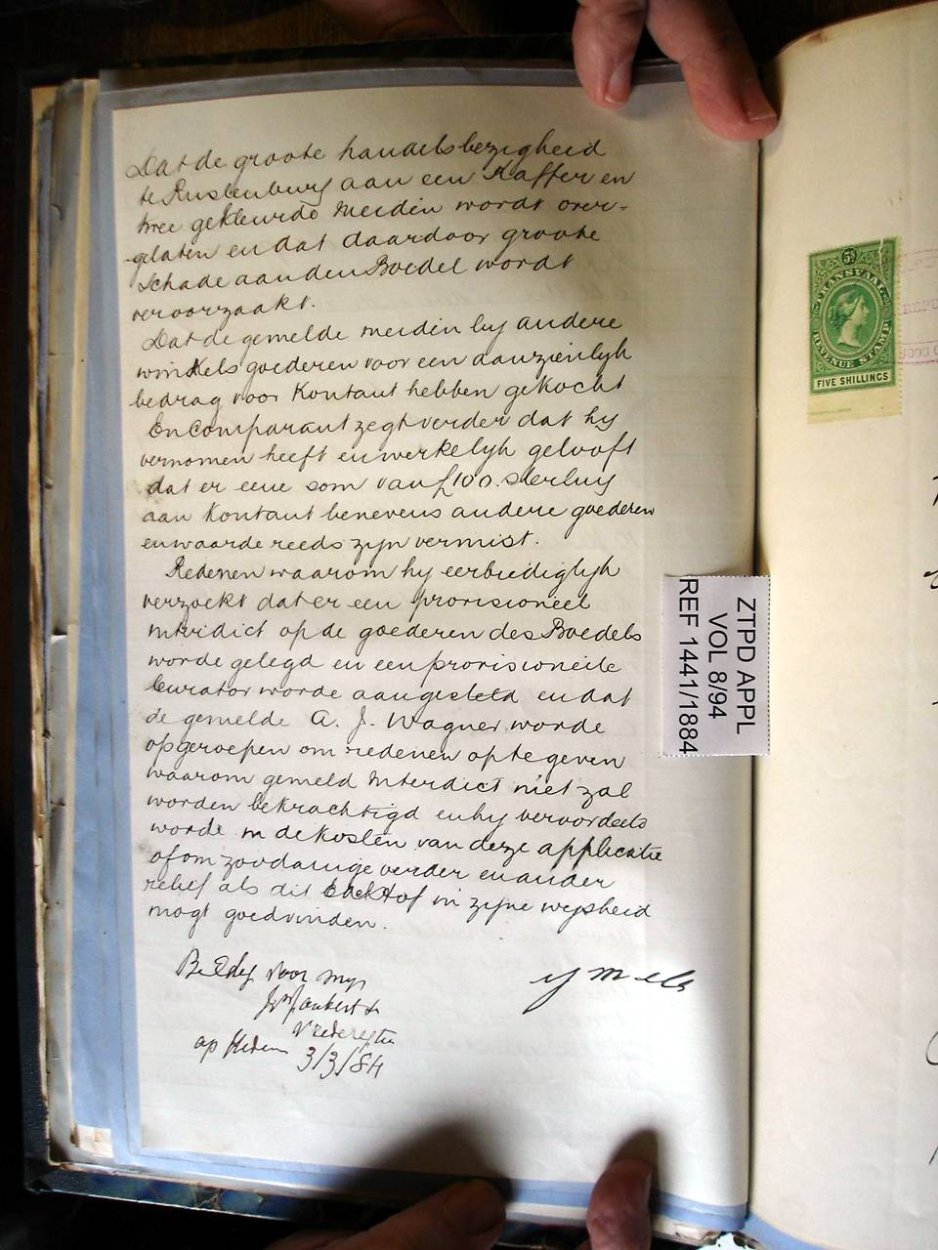 Dat de groote handelsbezigheid
te Rustenburg aan een Kaffer en
twee gekleurde meiden wordt over-
gelaten en dat daardoor groote
Schade aan den Boedel wordt
veroorzaakt.
Dat de gemelde meiden by andere
winkels goederen voor een aanzienlyk
bedrag voor Kontant hebben gekocht
En Comparant zegt verder dat hy
vernomen heeft en werkelyk gelooft
dat er eene som van £100. sterling
aan Kontant benevens andere goederen
en waarde reeds zyn vermist.
Redenen waarom hy eerbiediglyk
verzoekt dat er een provisioneel
Interdict op de goederen des Boedels
worde gelegd en een provisioneele
Curator worde aangesteld en dat
de gemelde A. J. Wagner worde
opgeroepen om redenen op te geven
waarom gemeld Interdict niet zal
worden bekrachtigd en hy veroordeeld
worde in de kosten van deze applicatie
of om zoodanige verder en ander
relief als dit Hof in zyne wysheid
mogt goedvinden.
Beëdigd voor my
Vrederegter
op Heden 3/3/84
TRANSVAAL
5S
REVENUE STAMP
FIVE SHILLINGS
ZTPD APPL
VOL 8/94
REF 1441/1884